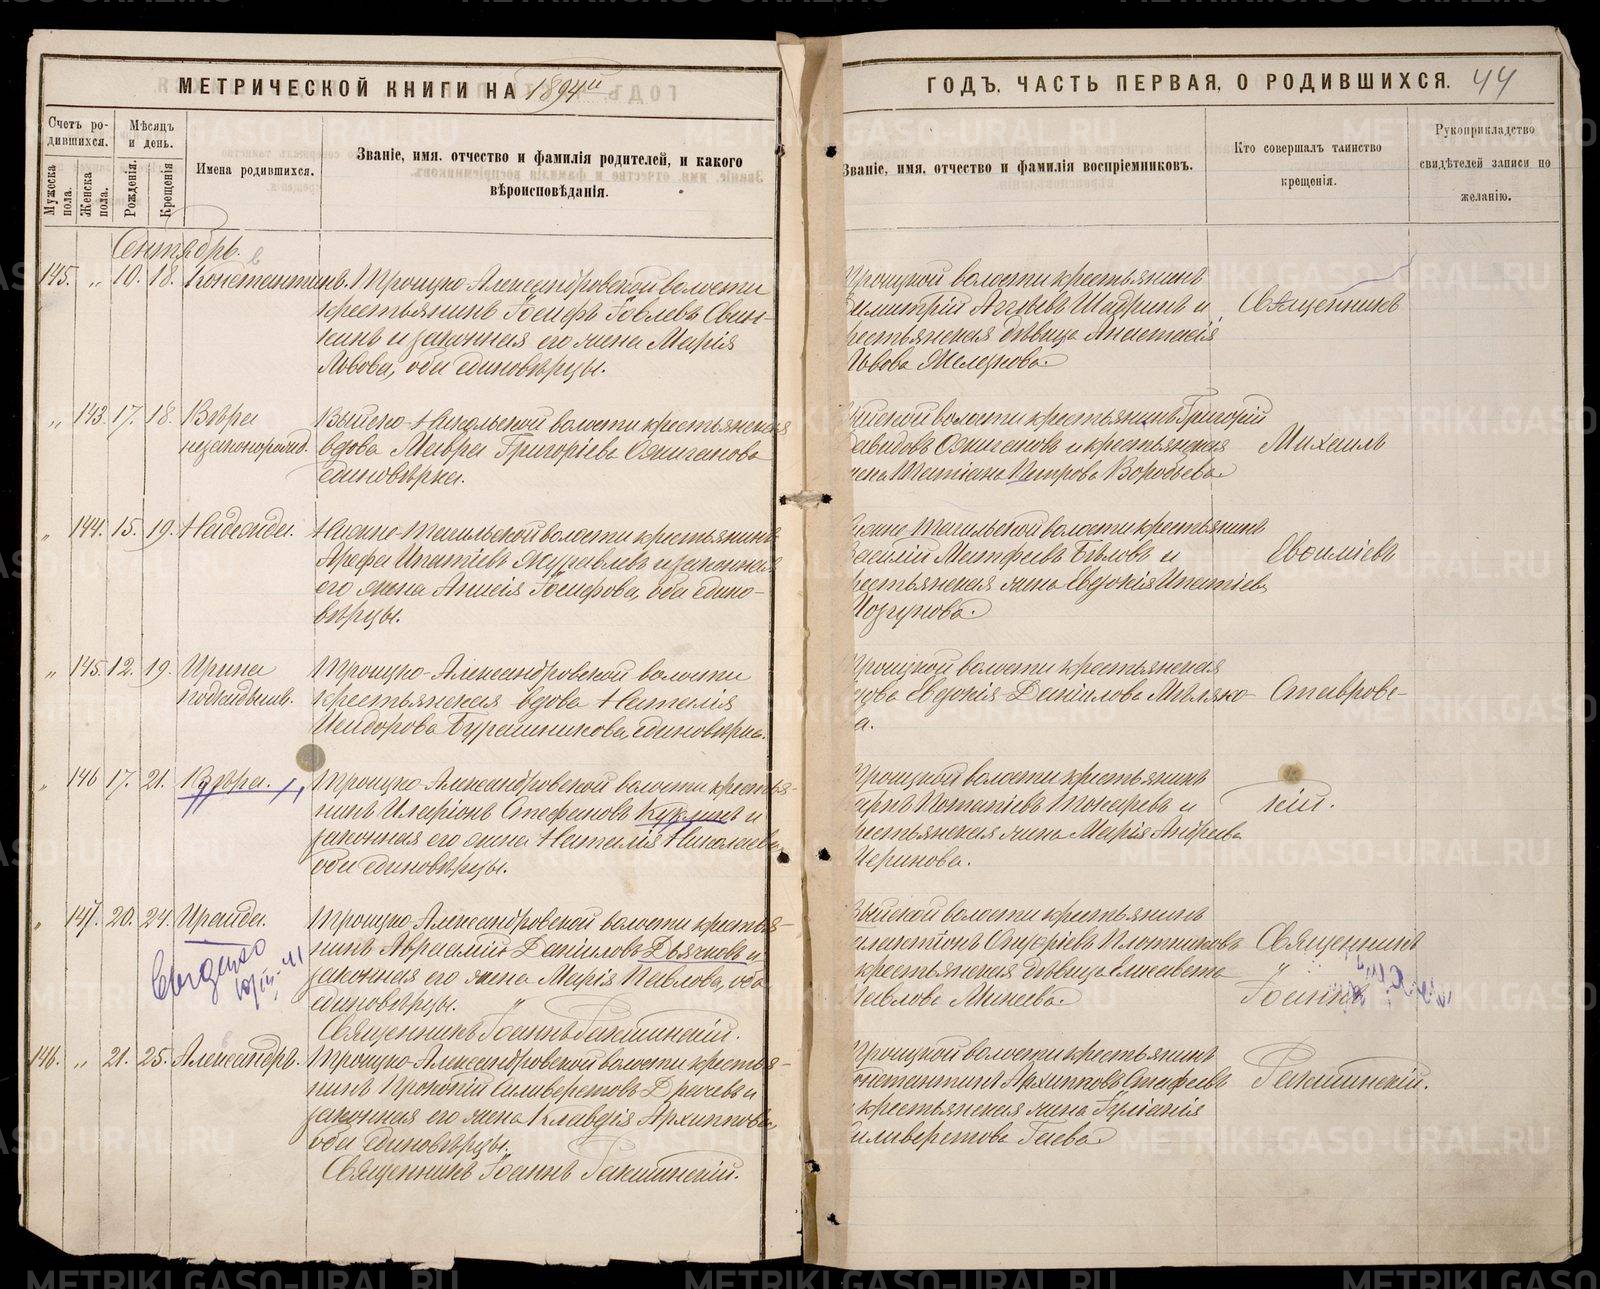 МЕТРИЧЕСКОЙ КНИГИ НА 1894й
ГОДЪ, ЧАСТЬ ПЕРВАЯ, О РОДИВШИХСЯ. 44
Счетъ ро-
дившихся.
Мужеска пола.
Женска пола.
Мѣсяцъ
и день.
Рожденія.
Крещенія
Имена родившихся.
Званіе, имя, отчество и фамилія родителей, и какого
вѣроисповѣданія.
Званіе, имя, отчество и фамилія воспріемниковъ.
Кто совершалъ таинство
крещенія.
Рукоприкладство
свидѣтелей записи по
желанію.
Сентябрь.
145. „ 10. 18. Константинъ. Троицко-Александровской волости
крестьянинъ Іосифъ Іовлевъ Свин-
кинъ и законная его жена Марія
Львова, оба единовѣрцы.
Троицкой волости крестьянинъ
Димитрій Шадринъ и
крестьянская дѣвица Анастасія
Львова Желѣзкова.
Священникъ
„ 143. 17. 18. Вѣра
незаконорожд.
Выйско-Никольской волости крестьянская
вдова Мавра Григоріева Ожиганова
единовѣрка.
Выйской волости крестьянинъ Григорій
Давидовъ Ожигановъ и крестьянская
жена Татіана Петрова Воробьева.
Михаилъ
„ 144. 15. 19. Надежда.
Нижне-Тагильской волости крестьянинъ
Арефа Ипатіевъ Журавлевъ и законная
его жена Анисія Іосифова, оба едино-
вѣрцы.
Нижне Тагильской волости крестьянинъ
Василій Матфеевъ Бѣловъ и
крестьянская жена Евдокія Ипатіева
Евѳиміевъ
„ 145. 12. 19. Ирина
подкидышъ.
Троицко-Александровской волости
крестьянская вдова Наталія
Исидорова единовѣрка.
Троицкой волости крестьянская
вдова Евдокія Даніилова
Ставров-
„ 146 17. 21. Вѣра.
Троицко-Александровской волости крестья-
нинъ Иларіонъ Стефановъ Куклинъ и
законная его жена Наталія Николаева
оба единовѣрцы.
Троицкой волости крестьянинъ
Маркъ Потапіевъ Токаревъ и
крестьянская жена Марія Андреева
Черинова.
скій.
„ 147. 20. 24. Ираида.
Троицко-Александровской волости крестья-
нинъ Авраамій Даніиловъ Дьячковъ и
законная его жена Марія Павлова, оба
единовѣрцы.
Священникъ Іоаннъ
Выйской волости крестьянинъ
Галактіонъ Плотниковъ
и крестьянская дѣвица Елисавета
Павлова Минеева.
Священникъ
Іоаннъ
146. „ 21. 25. Александръ.
Троицко-Александровской волости крестья-
нинъ Прокопій Силиверстовъ Драчевъ и
законная его жена Клавдія Архиппова,
оба единовѣрцы.
Священникъ Іоаннъ
Троицкой волости крестьянинъ
Константинъ Архипповъ
и крестьянская жена Іуліанія
Силиверстова Гаева.
METRIKI.GASO-URAL.RU